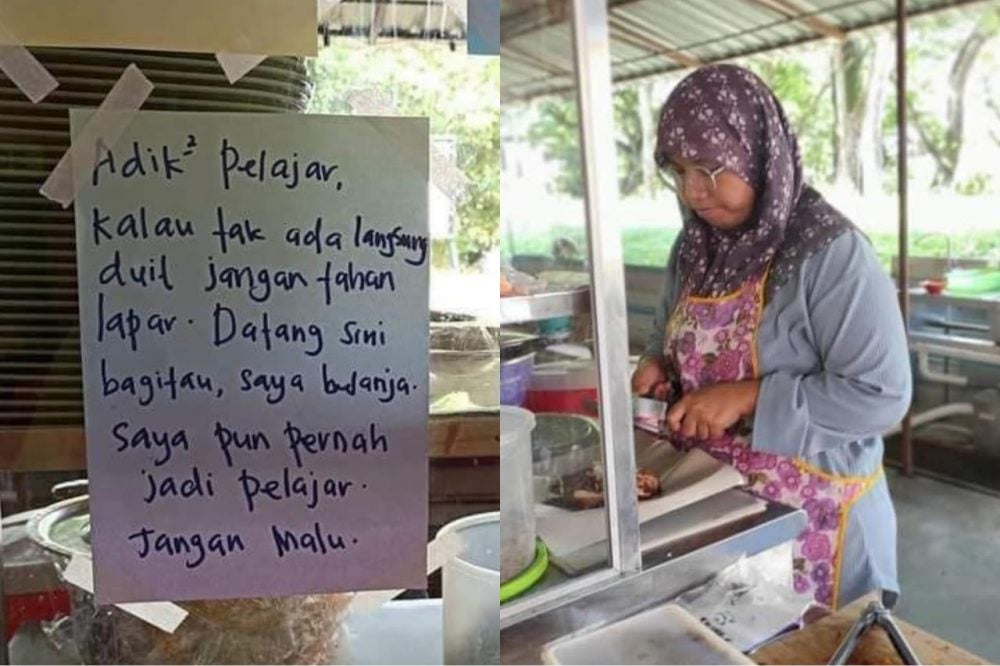 Adik² Pelajar,
Kalau tak ada langsung
duit jangan tahan
lapar. Datang sini
bagitau, saya belanja.
Saya pun pernah
jadi pelajar.
Jangan Malu.